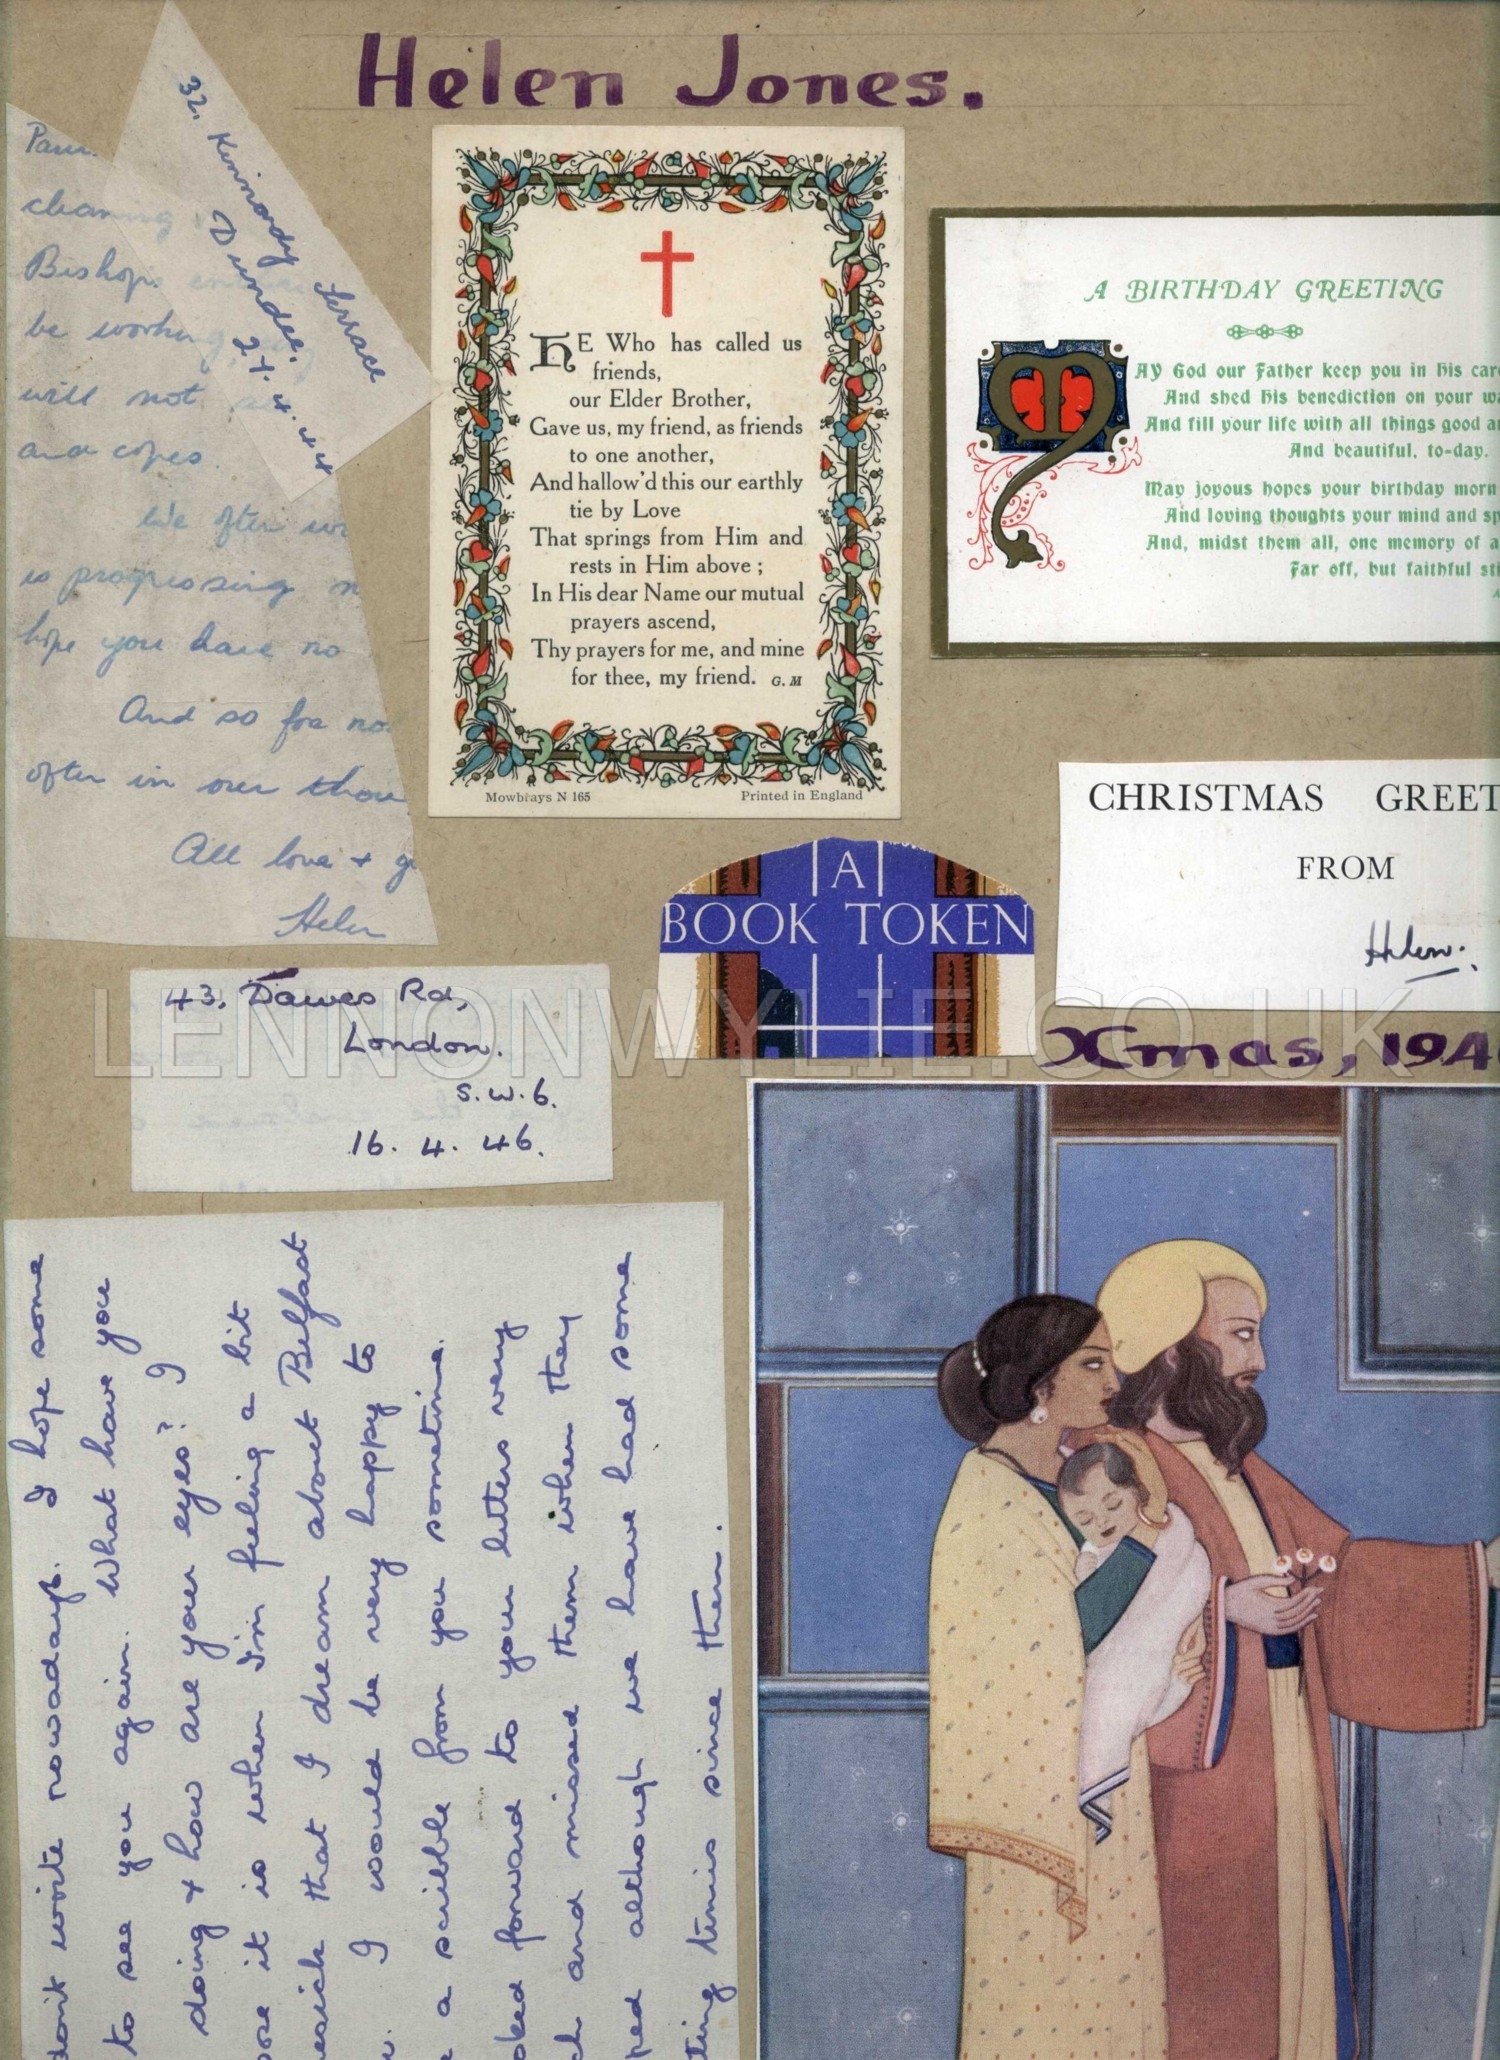 Helen Jones.
32, Kimmond
Terrace
Dundee.
cleaning
Bishops
be working,
will not
and copes
We often
is progressing
hope you have no
And so for
often in our
All love +
Helen
HE Who has called us
friends,
our Elder Brother,
Gave us, my friend, as friends
to one another,
And hallow'd this our earthly
tie by Love
That springs from Him and
rests in Him above;
In His dear Name our mutual
prayers ascend,
Thy prayers for me, and mine
for thee, my friend. G. M
Mowbrays N 165 Printed in England
A BIRTHDAY GREETING
MAY God our Father keep you in His care
And shed His benediction on your
And fill your life with all things good
And beautiful, to-day.
May joyous hopes your birthday morn
And loving thoughts your mind and
And, midst them all, one memory of a
Far off, but faithful
CHRISTMAS GREET
FROM
Helen.
A
BOOK TOKEN
Xmas, 194
43, Dawes Rd,
London.
S.W.6.
16. 4. 46.
don't write nowadays. I hope some
to see you again. What have you
doing & how are your eyes? I
ose it is when I'm feeling a bit
esick that I dream about Belfast
I would be very happy to
a scribble from you sometime.
oked forward to your letters very
ch and missed them when they
ped although we have had some
ting times since then.
LENNONWYLIE.CO.UK